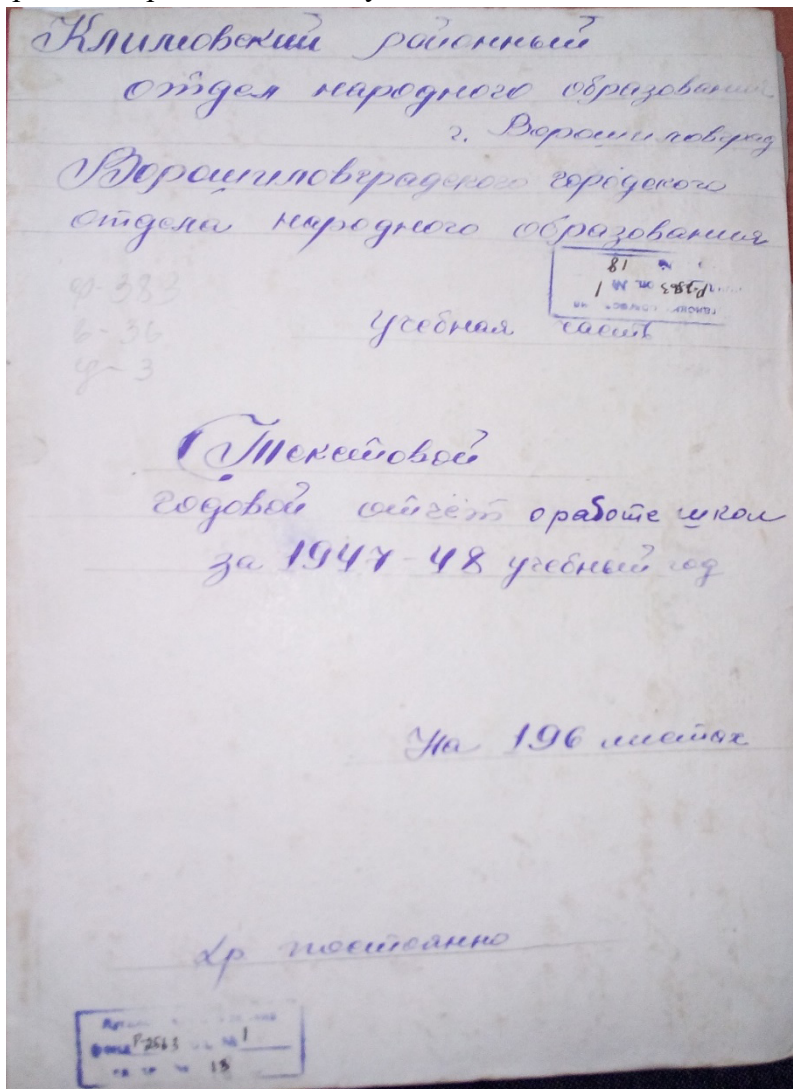 Климовский районный
отдел народного образования
г. Ворошиловград
Ворошиловградского городского
отдела народного образования
18
Р-2563 оп. № 1
ф-383
в-36
у-3
учебная часть
Текстовой
годовой отчёт о работе школ
за 1947-48 учебный год
На 196 листах
Хр постоянно
фонд Р-2563 № 1
18